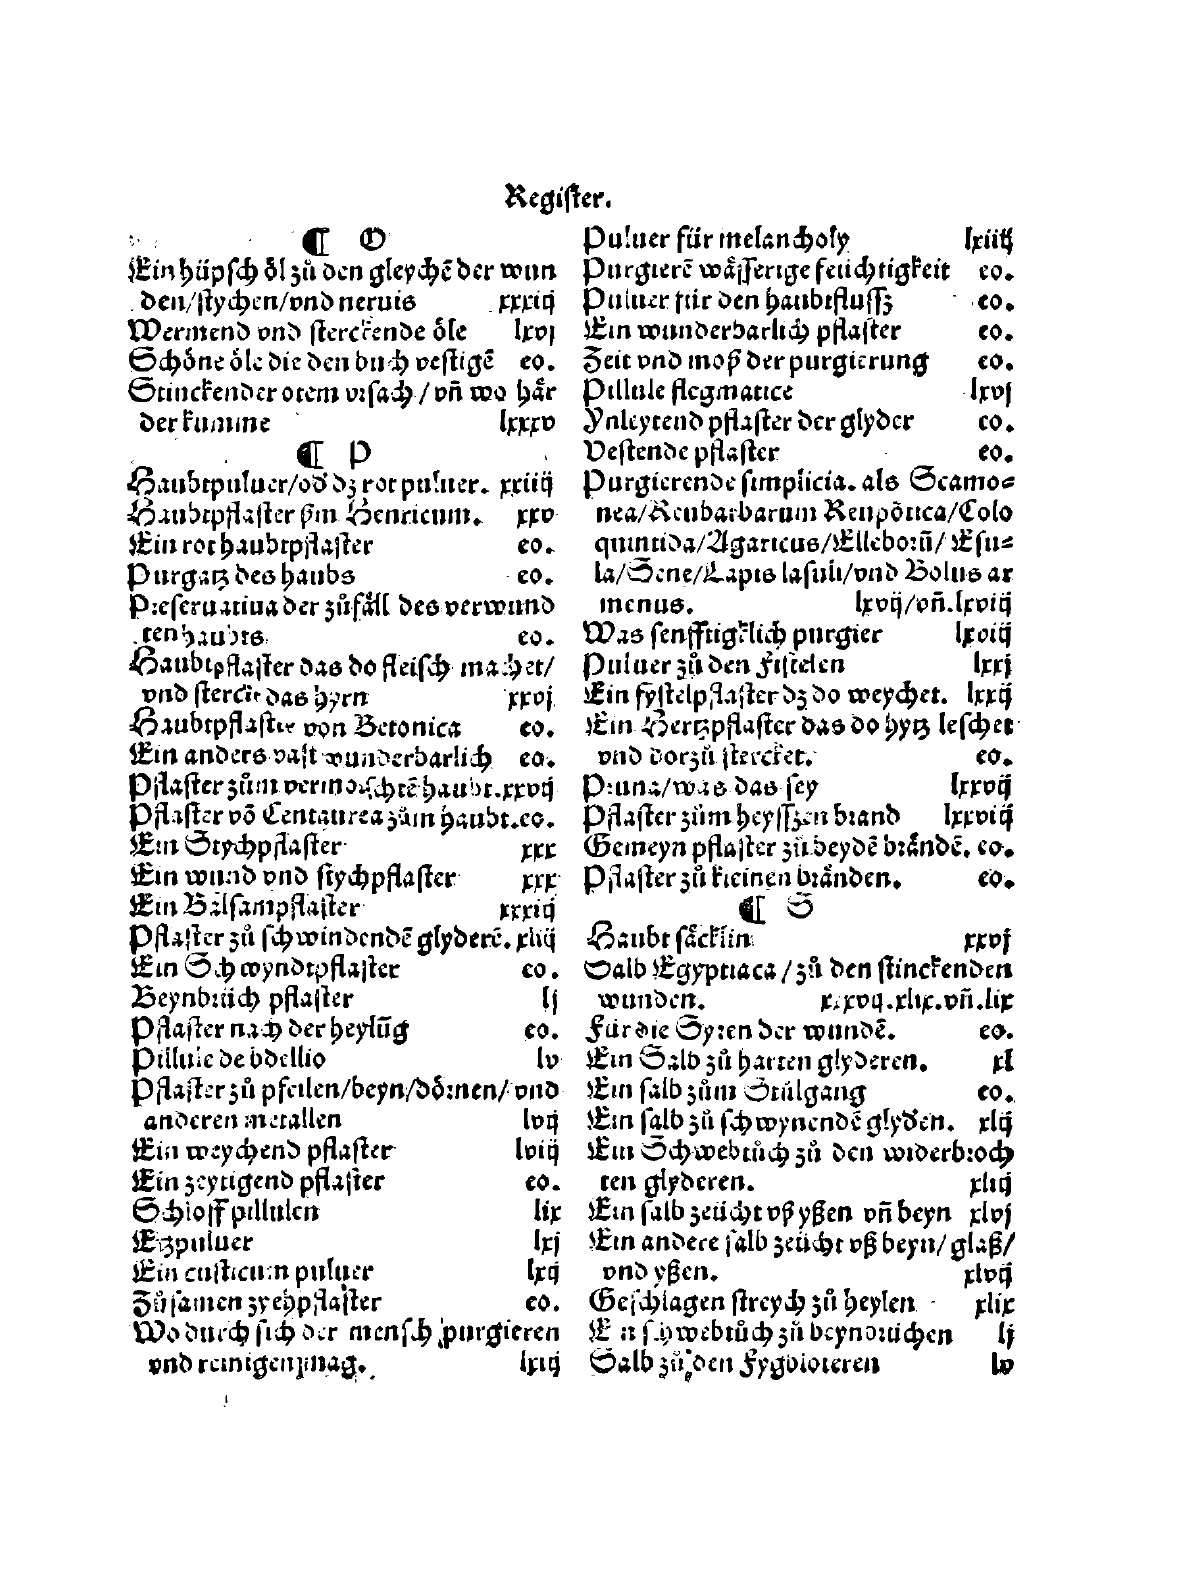 Register.
¶ O
Ein hüpsch öl zů den gleychē der wun
den/stychen/vnd neruis xxxiij
Wermend vnd sterckende öle lxvj
Schöne öle die den buch vestigē eo.
Stinckender otem vrsach/vñ wo här
der kumme lxxxv
¶ P
Haubtpuluer/od dz rot puluer. xxiiij
Haubtpflaster Henricum. xxv
Ein rot haubtpflaster eo.
Purgatz des haubs eo.
Preseruatiua der zůfäll des verwund
ten haubts eo.
Haubtpflaster das do fleisch machet/
vnd sterckt das hyrn xxvj
Haubtpflaster von Betonica eo.
Ein anders vast wunderbarlich eo.
Pflaster zům vermöschtē haubt. xxvij
Pflaster vō Centaurea zům haubt. eo.
Ein Stychpflaster xxx
Ein wund vnd stychpflaster xxx
Ein Balsampflaster xxxiij
Pflaster zů schwindendē glyderē. xliij
Ein Schwyndtpflaster eo.
Beynbrüch pflaster lj
Pflaster nach der heylūg eo.
Pillule de bdellio lv
Pflaster zů pfeilen/beyn/dörnen/vnd
anderen metallen lvij
Ein weychend pflaster lviij
Ein zeytigend pflaster eo.
Schloff pillulen lix
Etzpuluer lxj
Ein custicum puluer lxij
Zůsamen zyehpflaster eo.
Wo durch sich der mensch purgieren
vnd reinigen mag. lxiij
Puluer für melancholy lxiiij
Purgierē wässerige feüchtigkeit eo.
Puluer für den haubtflussz eo.
Ein wunderbarlich pflaster eo.
Zeit vnd moß der purgierung eo.
Pillule flegmatice lxvj
Ynleytend pflaster der glyder eo.
Vestende pflaster eo.
Purgierende simplicia. als Scamo⸗
nea/Reubarbarum Renpōtica/Colo
quintida/Agaricus/Elleborū/Esu⸗
la/Sene/Lapis lasuli/vnd Bolus ar
menus. lxvij/vñ.lxviij
Was senfftigklich purgier lxviij
Puluer zů den Fistelen lxxj
Ein fystelpflaster dz do weychet. lxxij
Ein Hertzpflaster das do hytz leschet
vnd dorzů stercket. eo.
Pruna/was das sey lxxvij
Pflaster zům heyssżen brand lxxviij
Gemeyn pflaster zů beydē brändē. eo.
Pflaster zů kleinen bränden. eo.
¶ S
Haubt säcklin xxvj
Salb Egyptiaca/zů den stinckenden
wunden. xxxvij.xlix.vñ.lix
Für die Syren der wundē. eo.
Ein Salb zů harten glyderen. xl
Ein salb zům Stůlgang eo.
Ein salb zů schwynendē glyden. xlij
Ein Schwebtůch zů den widerbroch
ten glyderen. xliij
Ein salb zeücht vß yßen vñ beyn xlvj
Ein andere salb zeücht vß beyn/glaß/
vnd yßen. xlvij
Geschlagen streych zů heylen xlix
Ein schwebtůch zů beynbrüchen lj
Salb zů den Fygbloteren lv